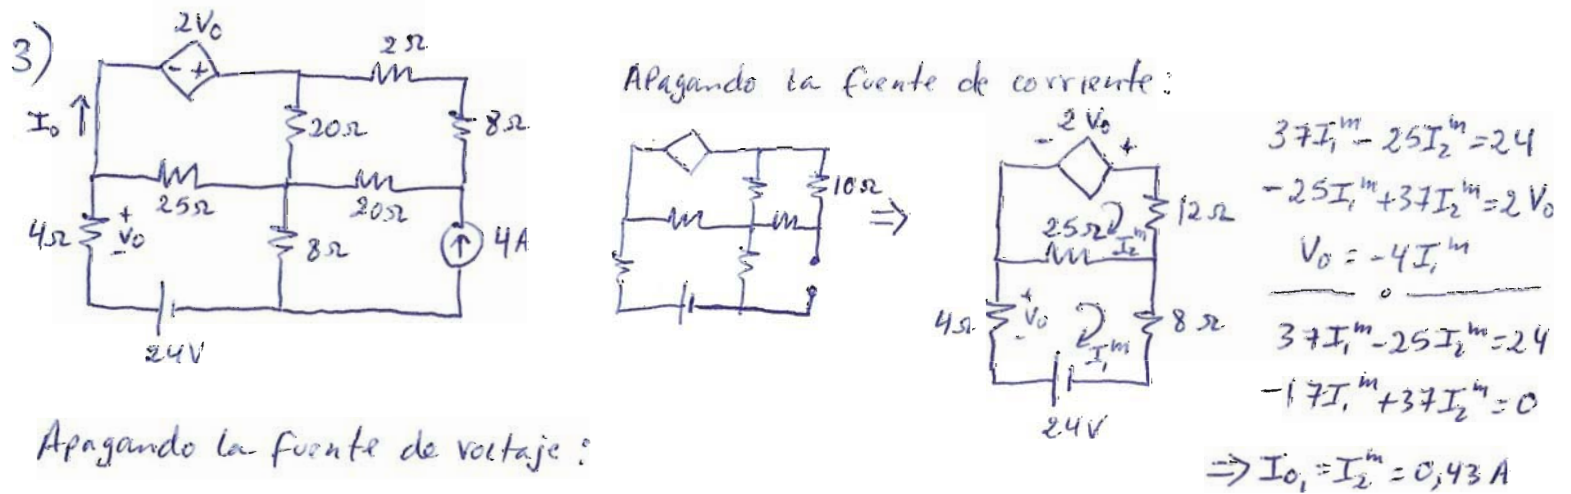 3)
2V₀
- +
2Ω
I₀
20Ω
8Ω
25Ω
20Ω
4Ω
+
V₀
-
8Ω
4A
24V
Apagando la fuente de corriente:
10Ω
⇒
- 2V₀ +
12Ω
25Ω
I₂ᵐ
4Ω
+
V₀
-
I₁ᵐ
8Ω
24V
37I₁ᵐ - 25I₂ᵐ = 24
-25I₁ᵐ + 37I₂ᵐ = 2V₀
V₀ = -4I₁ᵐ
37I₁ᵐ - 25I₂ᵐ = 24
-17I₁ᵐ + 37I₂ᵐ = 0
⇒ I₀₁ = I₂ᵐ = 0,43 A
Apagando la fuente de voltaje: